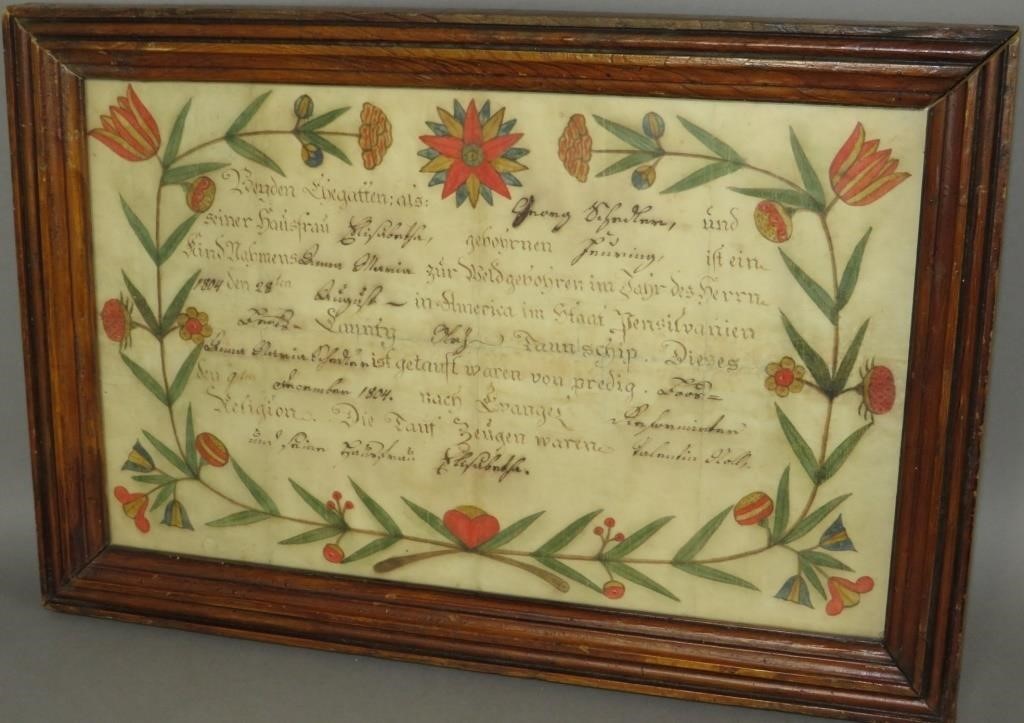 Beyden Ehegatten: als: Georg Schedler, und
seiner Haüsfraü Elisabetha, gebohrnen ist ein
Kind Nahmens Anna Maria zür Weldgebohren im Jahr des Herrn
1804 den 28ten Aügüst – in America im Staat Pensilvanien
Berks – Caünty Taünschip. Dieses
Anna Maria Schedler ist getaüft waren von predig.
den 9ten December 1804. nach Evangel Reformirter
Religion. Die Taüf Zeügen waren Valentin
und seine Haüsfraü Elisabetha.